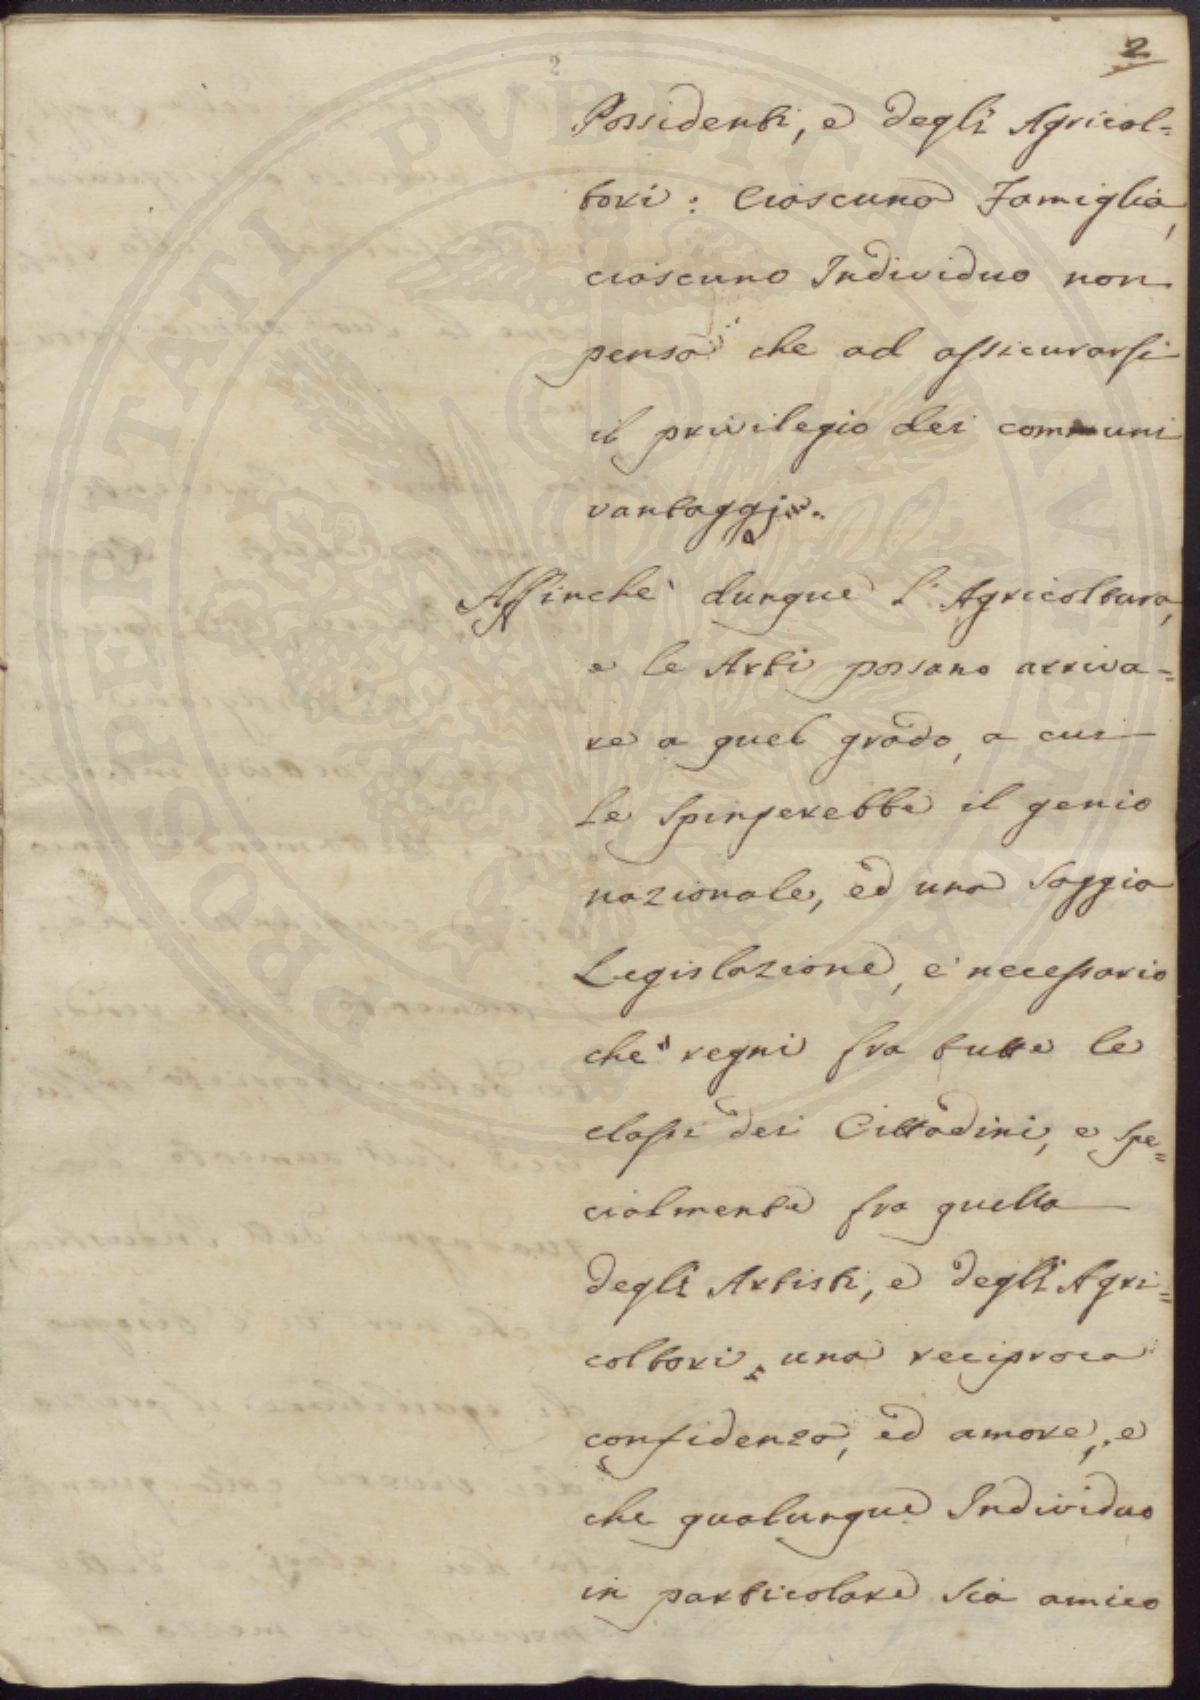 2
2
Possidenti, e degli Agricol=
tori: Ciascuna Famiglia,
ciascuno Individuo non
pensa che ad assicurarsi
il privilegio dei communi
vantaggi.
Affinchè dunque l'Agricoltura,
e le Arti possano arriva=
re a quel grado, a cui
le spingerebbe il genio
nazionale, ed una saggia
Legislazione, è necessario
che regni fra tutte le
classi dei Cittadini, e spe=
cialmente fra quella
degli Artisti, e degli Agri=
coltori, una reciproca
confidenza, ed amore, e
che qualunque Individuo
in particolare sia amico
PROSPERITATI PVBLICAE AVGENDAE